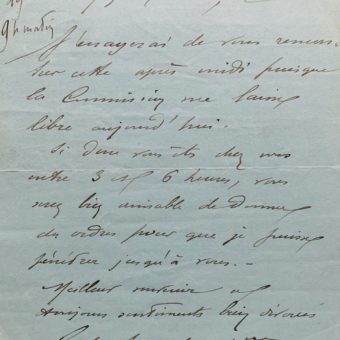 9h matin
J'essayerai de vous rencon-
trer cette après midi puisque
la Commission me laisse
libre aujourd'hui.
Si donc vous êtes chez vous
entre 3 et 6 heures, vous
serez bien aimable de donner
des ordres pour que je puisse
pénétrer jusqu'à vous. —
Meilleur souvenir et
toujours sentiments bien dévoués